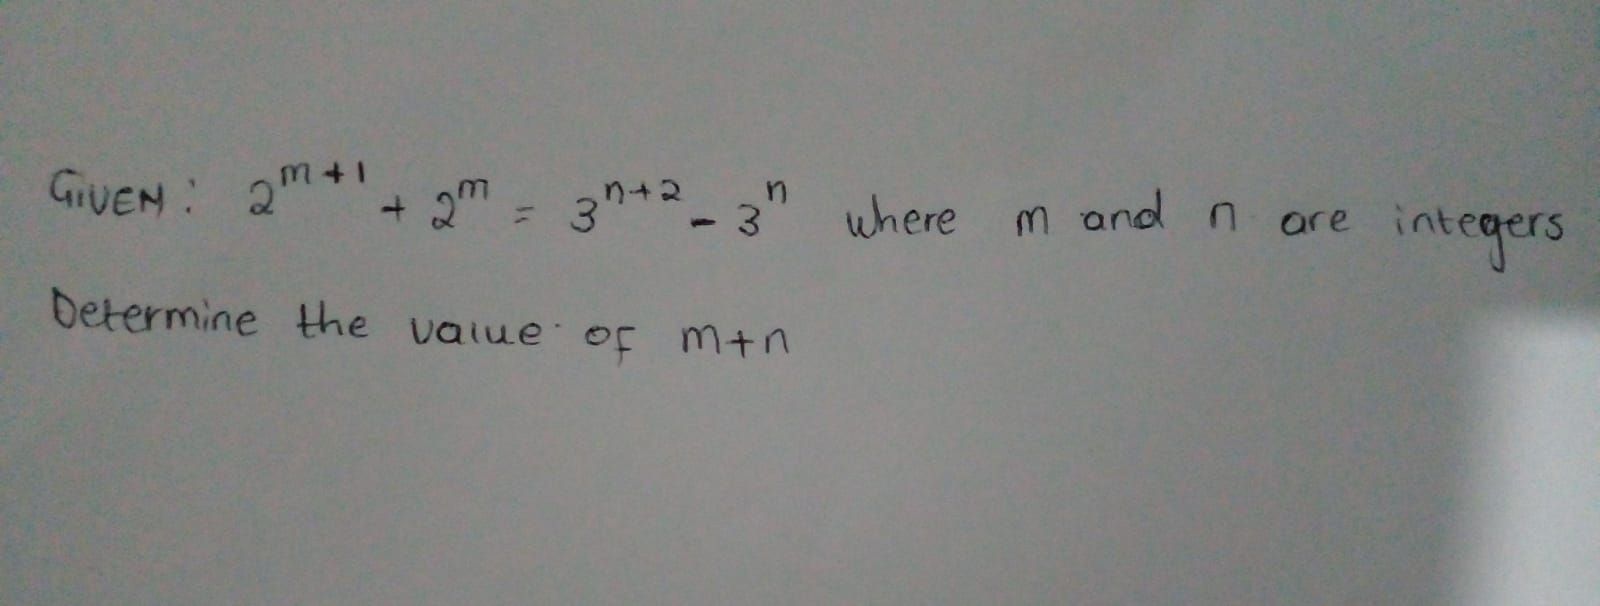 GIVEN: 2^{m+1} + 2^m = 3^{n+2} - 3^n where m and n are integers
Determine the value of m+n